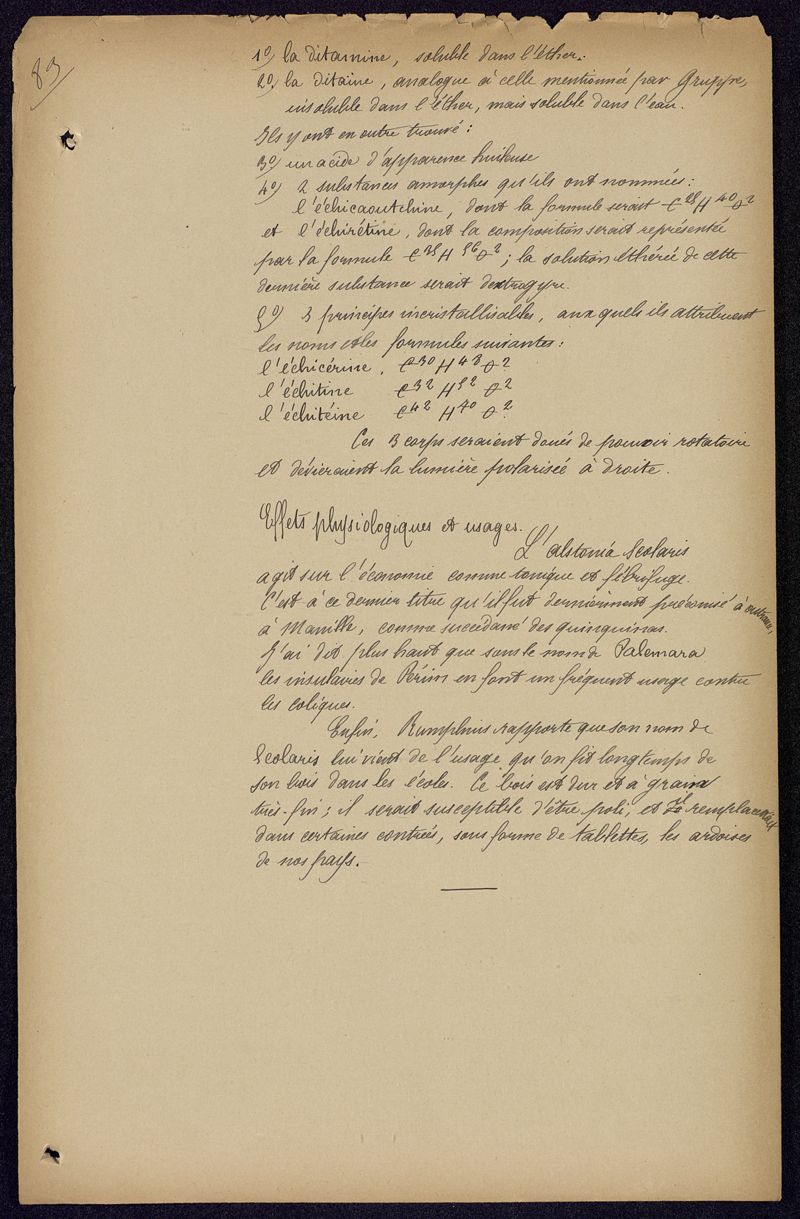 83
1o) la ditamine, soluble dans l'éther.
2o) la ditaïne, analogue à celle mentionnée par Gruppe,
insoluble dans l'éther, mais soluble dans l'eau.
Ils y ont en outre trouvé :
3o) un acide d'apparence huileuse
4o) 2 substances amorphes qu'ils ont nommées :
l'échicaoutchine, dont la formule serait C25 H40 O2
et l'échirétine, dont la composition serait représentée
par la formule C35 H56 O2 ; la solution éthérée de cette
dernière substance serait dextrogyre.
5o) 3 principes incristallisables, auxquels ils attribuent
les noms et les formules suivantes :
l'échicérine, C30 H48 O2
l'échitine C32 H52 O2
l'échitéine C42 H70 O2
Ces 3 corps seraient doués de pouvoir rotatoire
et dévieraient la lumière polarisée à droite.
Effets physiologiques et usages.
L'alstonia Scolaris
agit sur l'économie comme tonique et fébrifuge.
C'est à ce dernier titre qu'il fut dernièrement préconisé à outrance,
à Manille, comme succédané des quinquinas.
J'ai dit plus haut que sous le nom de Palemara
les insulaires de Périm en font un fréquent usage contre
les coliques.
Enfin, Rumphius rapporte que son nom de
Scolaris lui vient de l'usage qu'on fit longtemps de
son bois dans les écoles. Ce bois est dur et à grain
très-fin ; il serait susceptible d'être poli, et il remplacerait
dans certaines contrées, sous forme de tablettes, les ardoises
de nos pays.